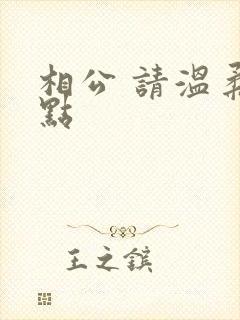 相公 請溫柔
點
王之